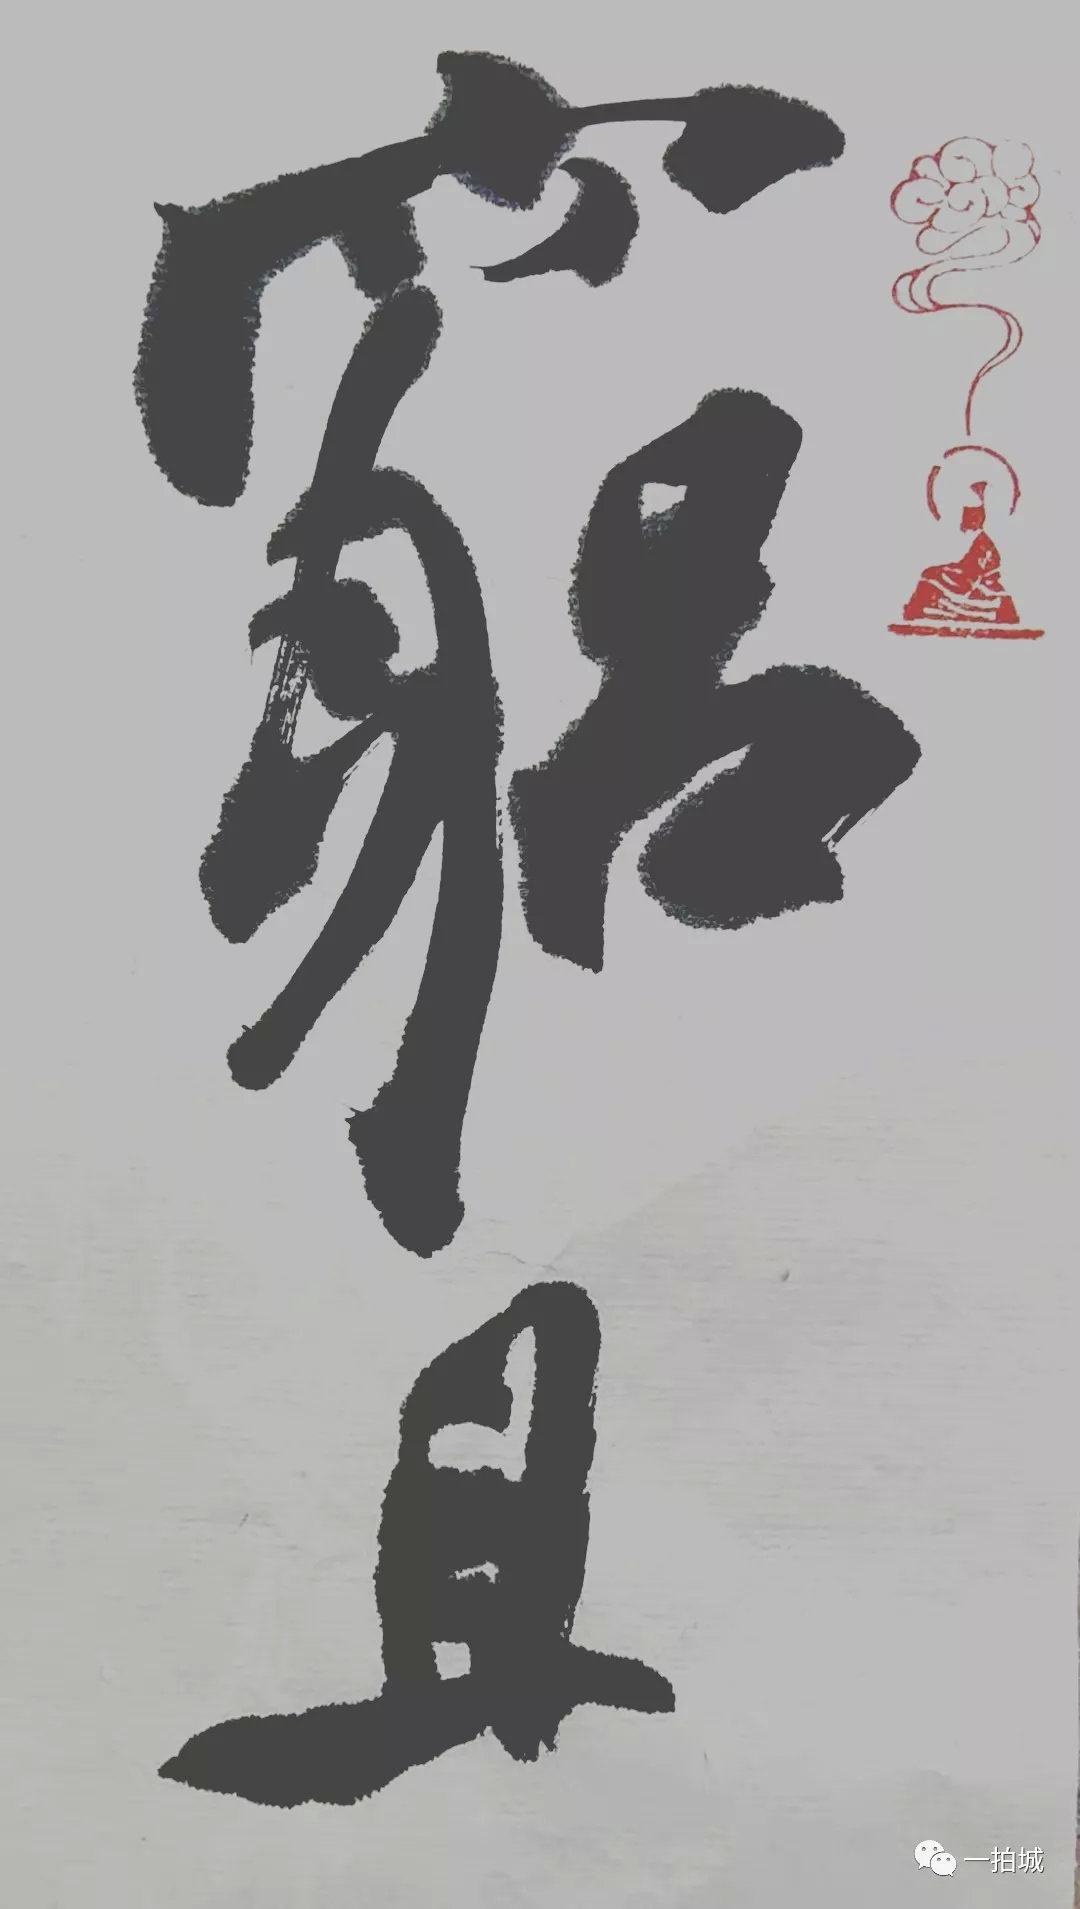 竆
且
一拍城